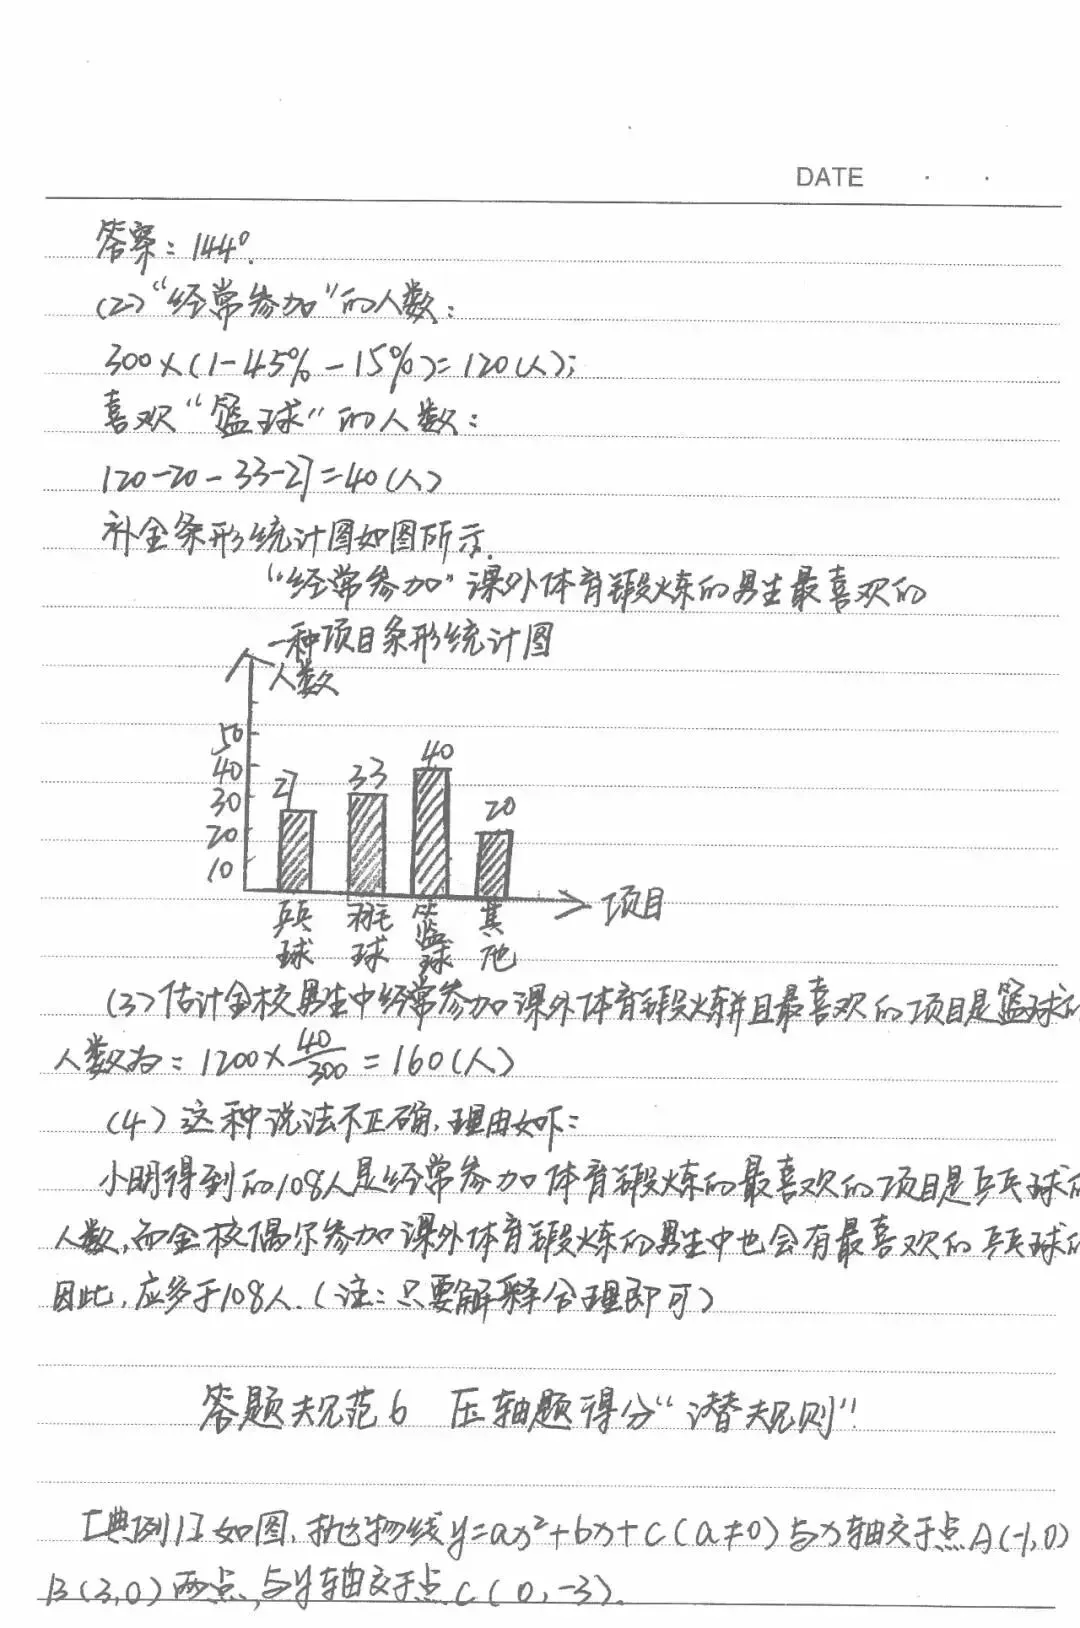 DATE
答案：144°.
(2)“经常参加”的人数：
300×(1-45%-15%)=120(人);
喜欢“篮球”的人数：
120-20-33-27=40(人)
补全条形统计图如图所示.
“经常参加”课外体育锻炼的男生最喜欢的
一种项目条形统计图
人数
50
40
30
20
10
27
33
40
20
乒乓球
羽毛球
篮球
其他
项目
(3)估计全校男生中经常参加课外体育锻炼并且最喜欢的项目是篮球的
人数为：1200×40/300=160(人)
(4)这种说法不正确,理由如下：
小明得到的108人是经常参加体育锻炼的最喜欢的项目是乒乓球的
人数,而全校偶尔参加课外体育锻炼的男生中也会有最喜欢的乒乓球的
因此,应多于108人.(注：只要解释合理即可)
答题规范6 压轴题得分“潜规则”
[典例1]如图,抛物线y=ax²+bx+c(a≠0)与x轴交于点A(-1,0)
B(3,0)两点,与y轴交于点C(0,-3).